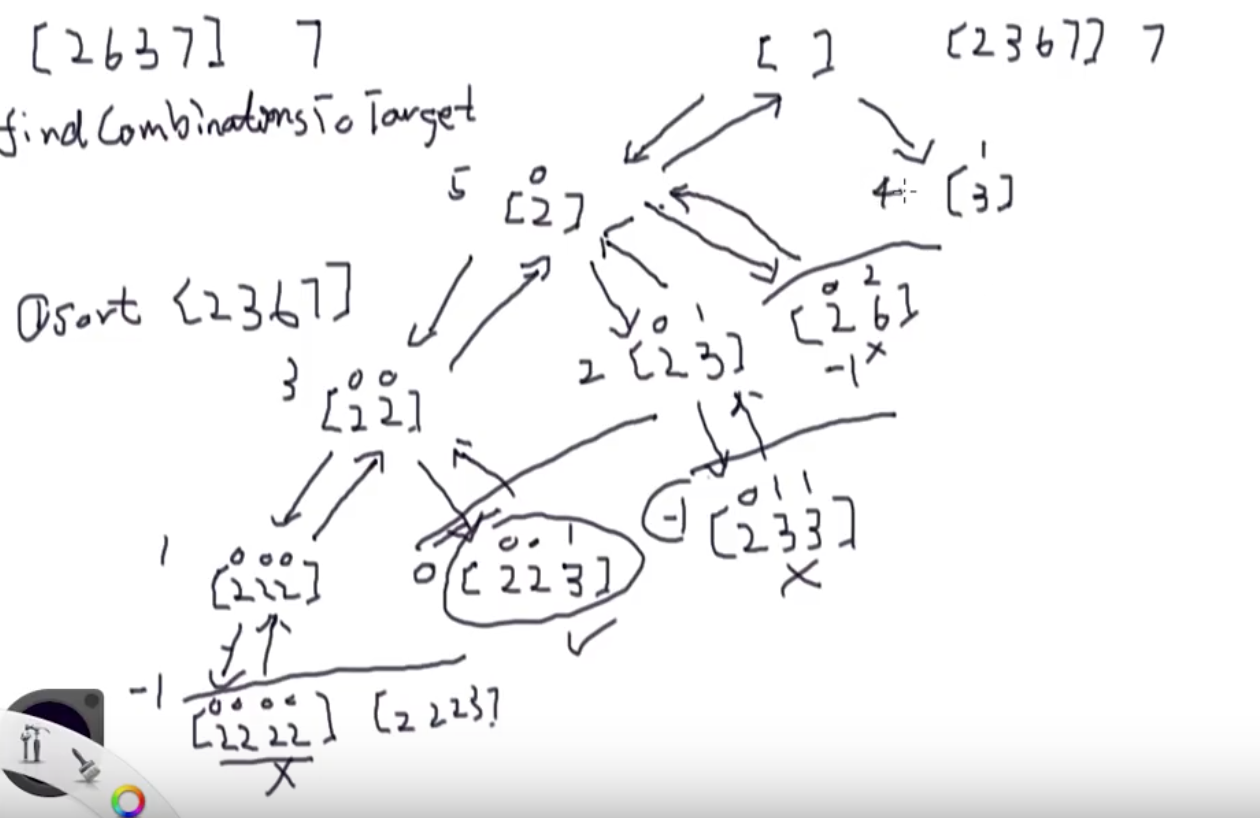 [2637] 7
[ ] [2367] 7
findCombinationsToTarget
1
4 [3]
0
5 [2]
0 2
[2 6]
-1 x
① sort [2367]
0 1
2 [2 3]
0 0
3 [2 2]
0 1 1
-1 [2 3 3]
x
0 0 1
0 [2 2 3]
0 0 0
1 [2 2 2]
-1
0 0 0 0
[2 2 2 2] [2 2 2 3]
x